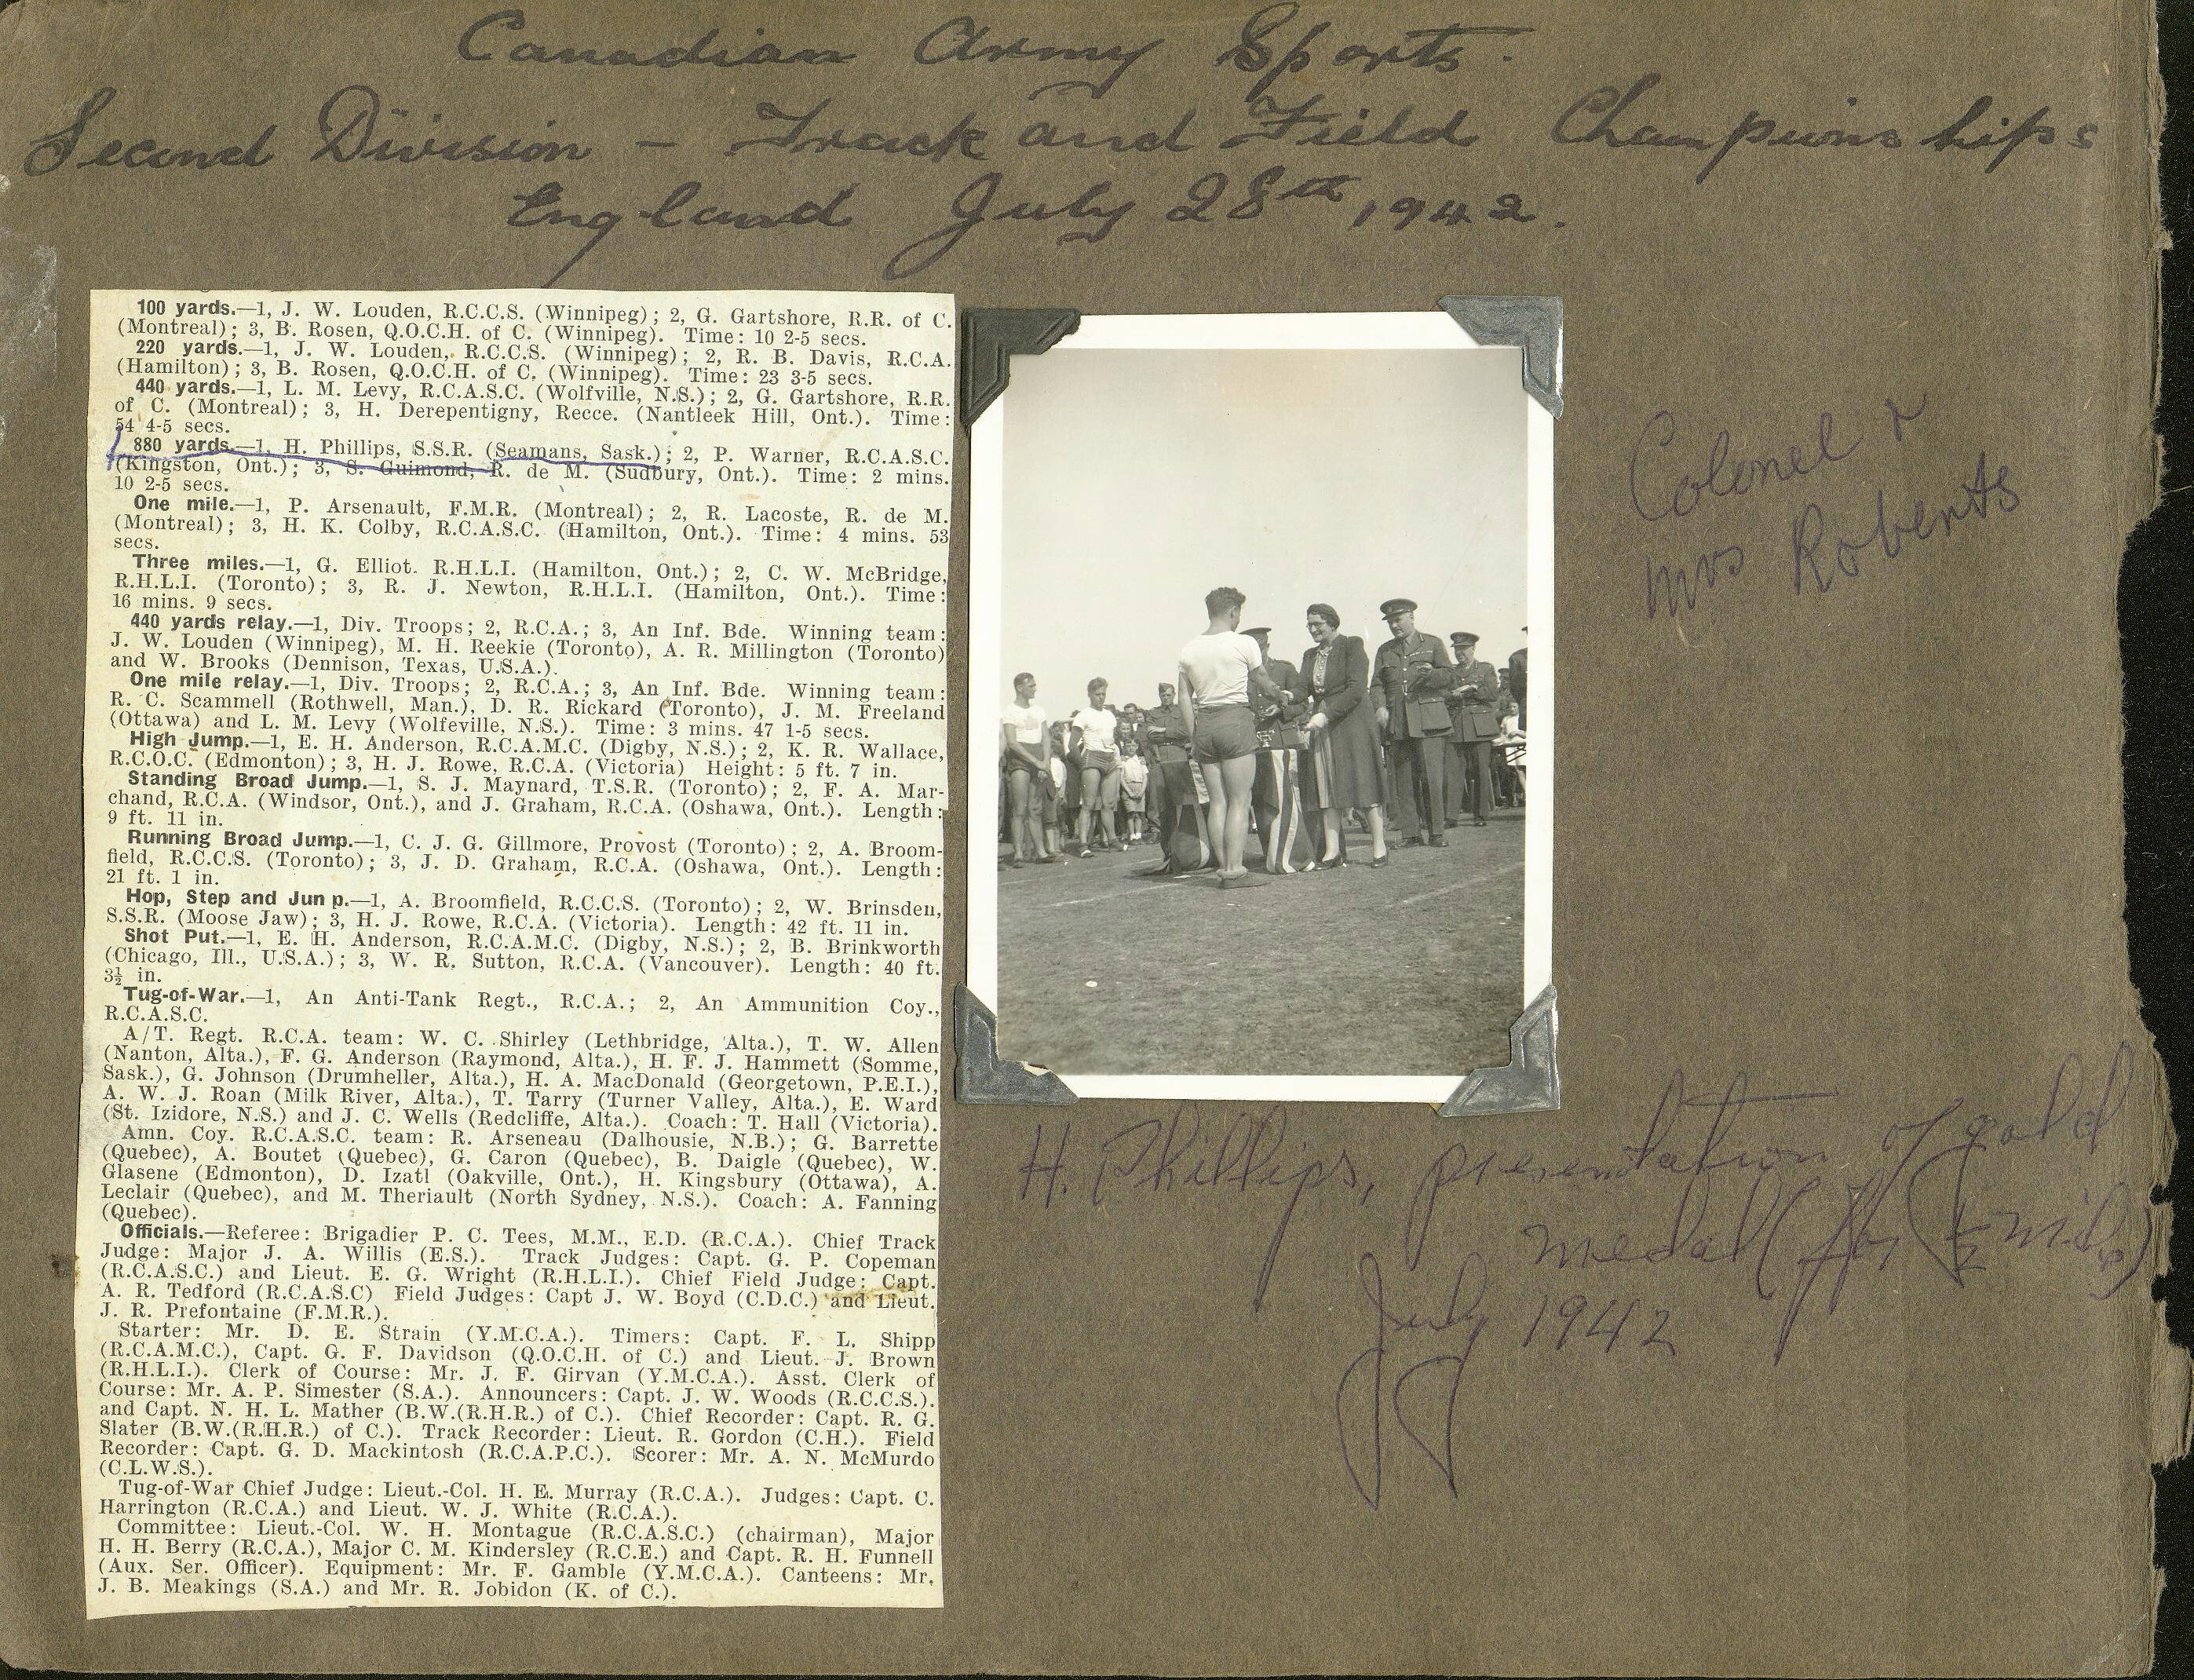 Canadian Army Sports.
Second Division - Track and Field Championships
England July 28th, 1942.
100 yards.—1, J. W. Louden, R.C.C.S. (Winnipeg); 2, G. Gartshore, R.R. of C.
(Montreal); 3, B. Rosen, Q.O.C.H. of C. (Winnipeg). Time: 10 2-5 secs.
220 yards.—1, J. W. Louden, R.C.C.S. (Winnipeg); 2, R. B. Davis, R.C.A.
(Hamilton); 3, B. Rosen, Q.O.C.H. of C. (Winnipeg). Time: 23 3-5 secs.
440 yards.—1, L. M. Levy, R.C.A.S.C. (Wolfville, N.S.); 2, G. Gartshore, R.R.
of C. (Montreal); 3, H. Derepentigny, Recce. (Nantleek Hill, Ont.). Time:
54 4-5 secs.
880 yards.—1, H. Phillips, S.S.R. (Seamans, Sask.); 2, P. Warner, R.C.A.S.C.
(Kingston, Ont.); 3, S. Guimond, R. de M. (Sudbury, Ont.). Time: 2 mins.
10 2-5 secs.
One mile.—1, P. Arsenault, F.M.R. (Montreal); 2, R. Lacoste, R. de M.
(Montreal); 3, H. K. Colby, R.C.A.S.C. (Hamilton, Ont.). Time: 4 mins. 53
secs.
Three miles.—1, G. Elliot. R.H.L.I. (Hamilton, Ont.); 2, C. W. McBridge,
R.H.L.I. (Toronto); 3, R. J. Newton, R.H.L.I. (Hamilton, Ont.). Time:
16 mins. 9 secs.
440 yards relay.—1, Div. Troops; 2, R.C.A.; 3, An Inf. Bde. Winning team:
J. W. Louden (Winnipeg), M. H. Reekie (Toronto), A. R. Millington (Toronto)
and W. Brooks (Dennison, Texas, U.S.A.).
One mile relay.—1, Div. Troops; 2, R.C.A.; 3, An Inf. Bde. Winning team:
R. C. Scammell (Rothwell, Man.), D. R. Rickard (Toronto), J. M. Freeland
(Ottawa) and L. M. Levy (Wolfeville, N.S.). Time: 3 mins. 47 1-5 secs.
High Jump.—1, E. H. Anderson, R.C.A.M.C. (Digby, N.S.); 2, K. R. Wallace,
R.C.O.C. (Edmonton); 3, H. J. Rowe, R.C.A. (Victoria) Height: 5 ft. 7 in.
Standing Broad Jump.—1, S. J. Maynard, T.S.R. (Toronto); 2, F. A. Mar-
chand, R.C.A. (Windsor, Ont.), and J. Graham, R.C.A. (Oshawa, Ont.). Length:
9 ft. 11 in.
Running Broad Jump.—1, C. J. G. Gillmore, Provost (Toronto); 2, A. Broom-
field, R.C.C.S. (Toronto); 3, J. D. Graham, R.C.A. (Oshawa, Ont.). Length:
21 ft. 1 in.
Hop, Step and Jun p.—1, A. Broomfield, R.C.C.S. (Toronto); 2, W. Brinsden,
S.S.R. (Moose Jaw); 3, H. J. Rowe, R.C.A. (Victoria). Length: 42 ft. 11 in.
Shot Put.—1, E. H. Anderson, R.C.A.M.C. (Digby, N.S.); 2, B. Brinkworth
(Chicago, Ill., U.S.A.); 3, W. R. Sutton, R.C.A. (Vancouver). Length: 40 ft.
3½ in.
Tug-of-War.—1, An Anti-Tank Regt., R.C.A.; 2, An Ammunition Coy.,
R.C.A.S.C.
A/T. Regt. R.C.A. team: W. C. Shirley (Lethbridge, Alta.), T. W. Allen
(Nanton, Alta.), F. G. Anderson (Raymond, Alta.), H. F. J. Hammett (Somme,
Sask.), G. Johnson (Drumheller, Alta.), H. A. MacDonald (Georgetown, P.E.I.),
A. W. J. Roan (Milk River, Alta.), T. Tarry (Turner Valley, Alta.), E. Ward
(St. Izidore, N.S.) and J. C. Wells (Redcliffe, Alta.). Coach: T. Hall (Victoria).
Amn. Coy. R.C.A.S.C. team: R. Arseneau (Dalhousie, N.B.); G. Barrette
(Quebec), A. Boutet (Quebec), G. Caron (Quebec), B. Daigle (Quebec), W.
Glasene (Edmonton), D. Izatl (Oakville, Ont.), H. Kingsbury (Ottawa), A.
Leclair (Quebec), and M. Theriault (North Sydney, N.S.). Coach: A. Fanning
(Quebec).
Officials.—Referee: Brigadier P. C. Tees, M.M., E.D. (R.C.A.). Chief Track
Judge: Major J. A. Willis (E.S.). Track Judges: Capt. G. P. Copeman
(R.C.A.S.C.) and Lieut. E. G. Wright (R.H.L.I.). Chief Field Judge: Capt.
A. R. Tedford (R.C.A.S.C) Field Judges: Capt J. W. Boyd (C.D.C.) and Lieut.
J. R. Prefontaine (F.M.R.).
Starter: Mr. D. E. Strain (Y.M.C.A.). Timers: Capt. F. L. Shipp
(R.C.A.M.C.), Capt. G. F. Davidson (Q.O.C.H. of C.) and Lieut. J. Brown
(R.H.L.I.). Clerk of Course: Mr. J. F. Girvan (Y.M.C.A.). Asst. Clerk of
Course: Mr. A. P. Simester (S.A.). Announcers: Capt. J. W. Woods (R.C.C.S.).
and Capt. N. H. L. Mather (B.W.(R.H.R.) of C.). Chief Recorder: Capt. R. G.
Slater (B.W.(R.H.R.) of C.). Track Recorder: Lieut. R. Gordon (C.H.). Field
Recorder: Capt. G. D. Mackintosh (R.C.A.P.C.). Scorer: Mr. A. N. McMurdo
(C.L.W.S.).
Tug-of-War Chief Judge: Lieut.-Col. H. E. Murray (R.C.A.). Judges: Capt. C.
Harrington (R.C.A.) and Lieut. W. J. White (R.C.A.).
Committee: Lieut.-Col. W. H. Montague (R.C.A.S.C.) (chairman), Major
H. H. Berry (R.C.A.), Major C. M. Kindersley (R.C.E.) and Capt. R. H. Funnell
(Aux. Ser. Officer). Equipment: Mr. F. Gamble (Y.M.C.A.). Canteens: Mr.
J. B. Meakings (S.A.) and Mr. R. Jobidon (K. of C.).
Colonel &
Mrs Roberts
H. Phillips, presentation of gold
medal (for (½ mile)
July 1942